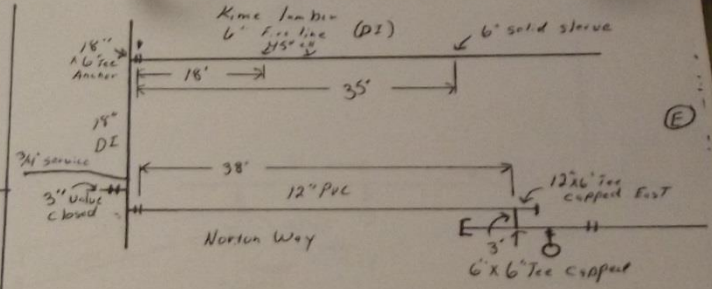 Kime Lumber
6" Fire line (DI)
45° ell
6" solid sleeve
18"
x 6" Tee
Anchor
18'
35'
E
18"
DI
3/4" service
38'
3" Valve
closed
12" PVC
12"x6" Tee
capped East
Norton Way
3'
6"x6" Tee capped